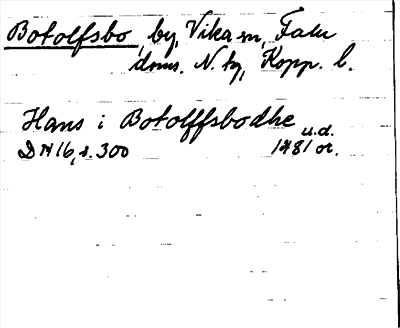 Botolfsbo, by, Vika sn, Falu
doms. N. tg, Kopp. l.
Hans i Botolffsbodhe u.d.
DN 16, s. 300 1481 or.